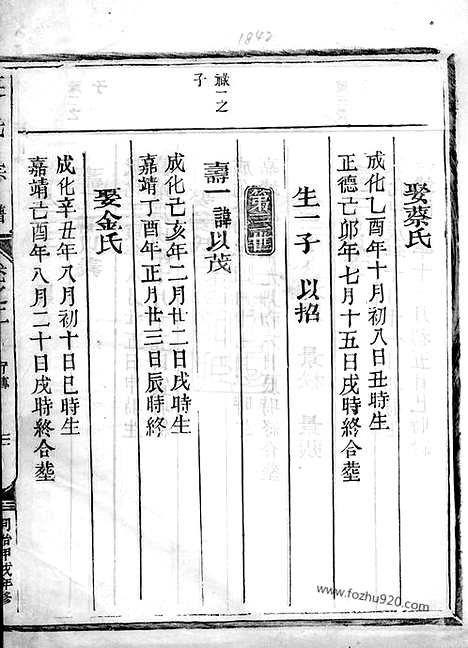 1842
娶蔡氏
成化乙酉年十月初八日丑時生
正德己卯年七月十五日戌時終合塟
生一子 以招
第三世
祿一之
子
壽一諱以茂
成化己亥年二月廿二日戌時生
嘉靖丁酉年正月廿三日辰時終
娶金氏
成化辛丑年八月初十日巳時生
嘉靖己酉年八月二十日戌時終合塟
同治甲戌年修
https://www.fozhu920.com/